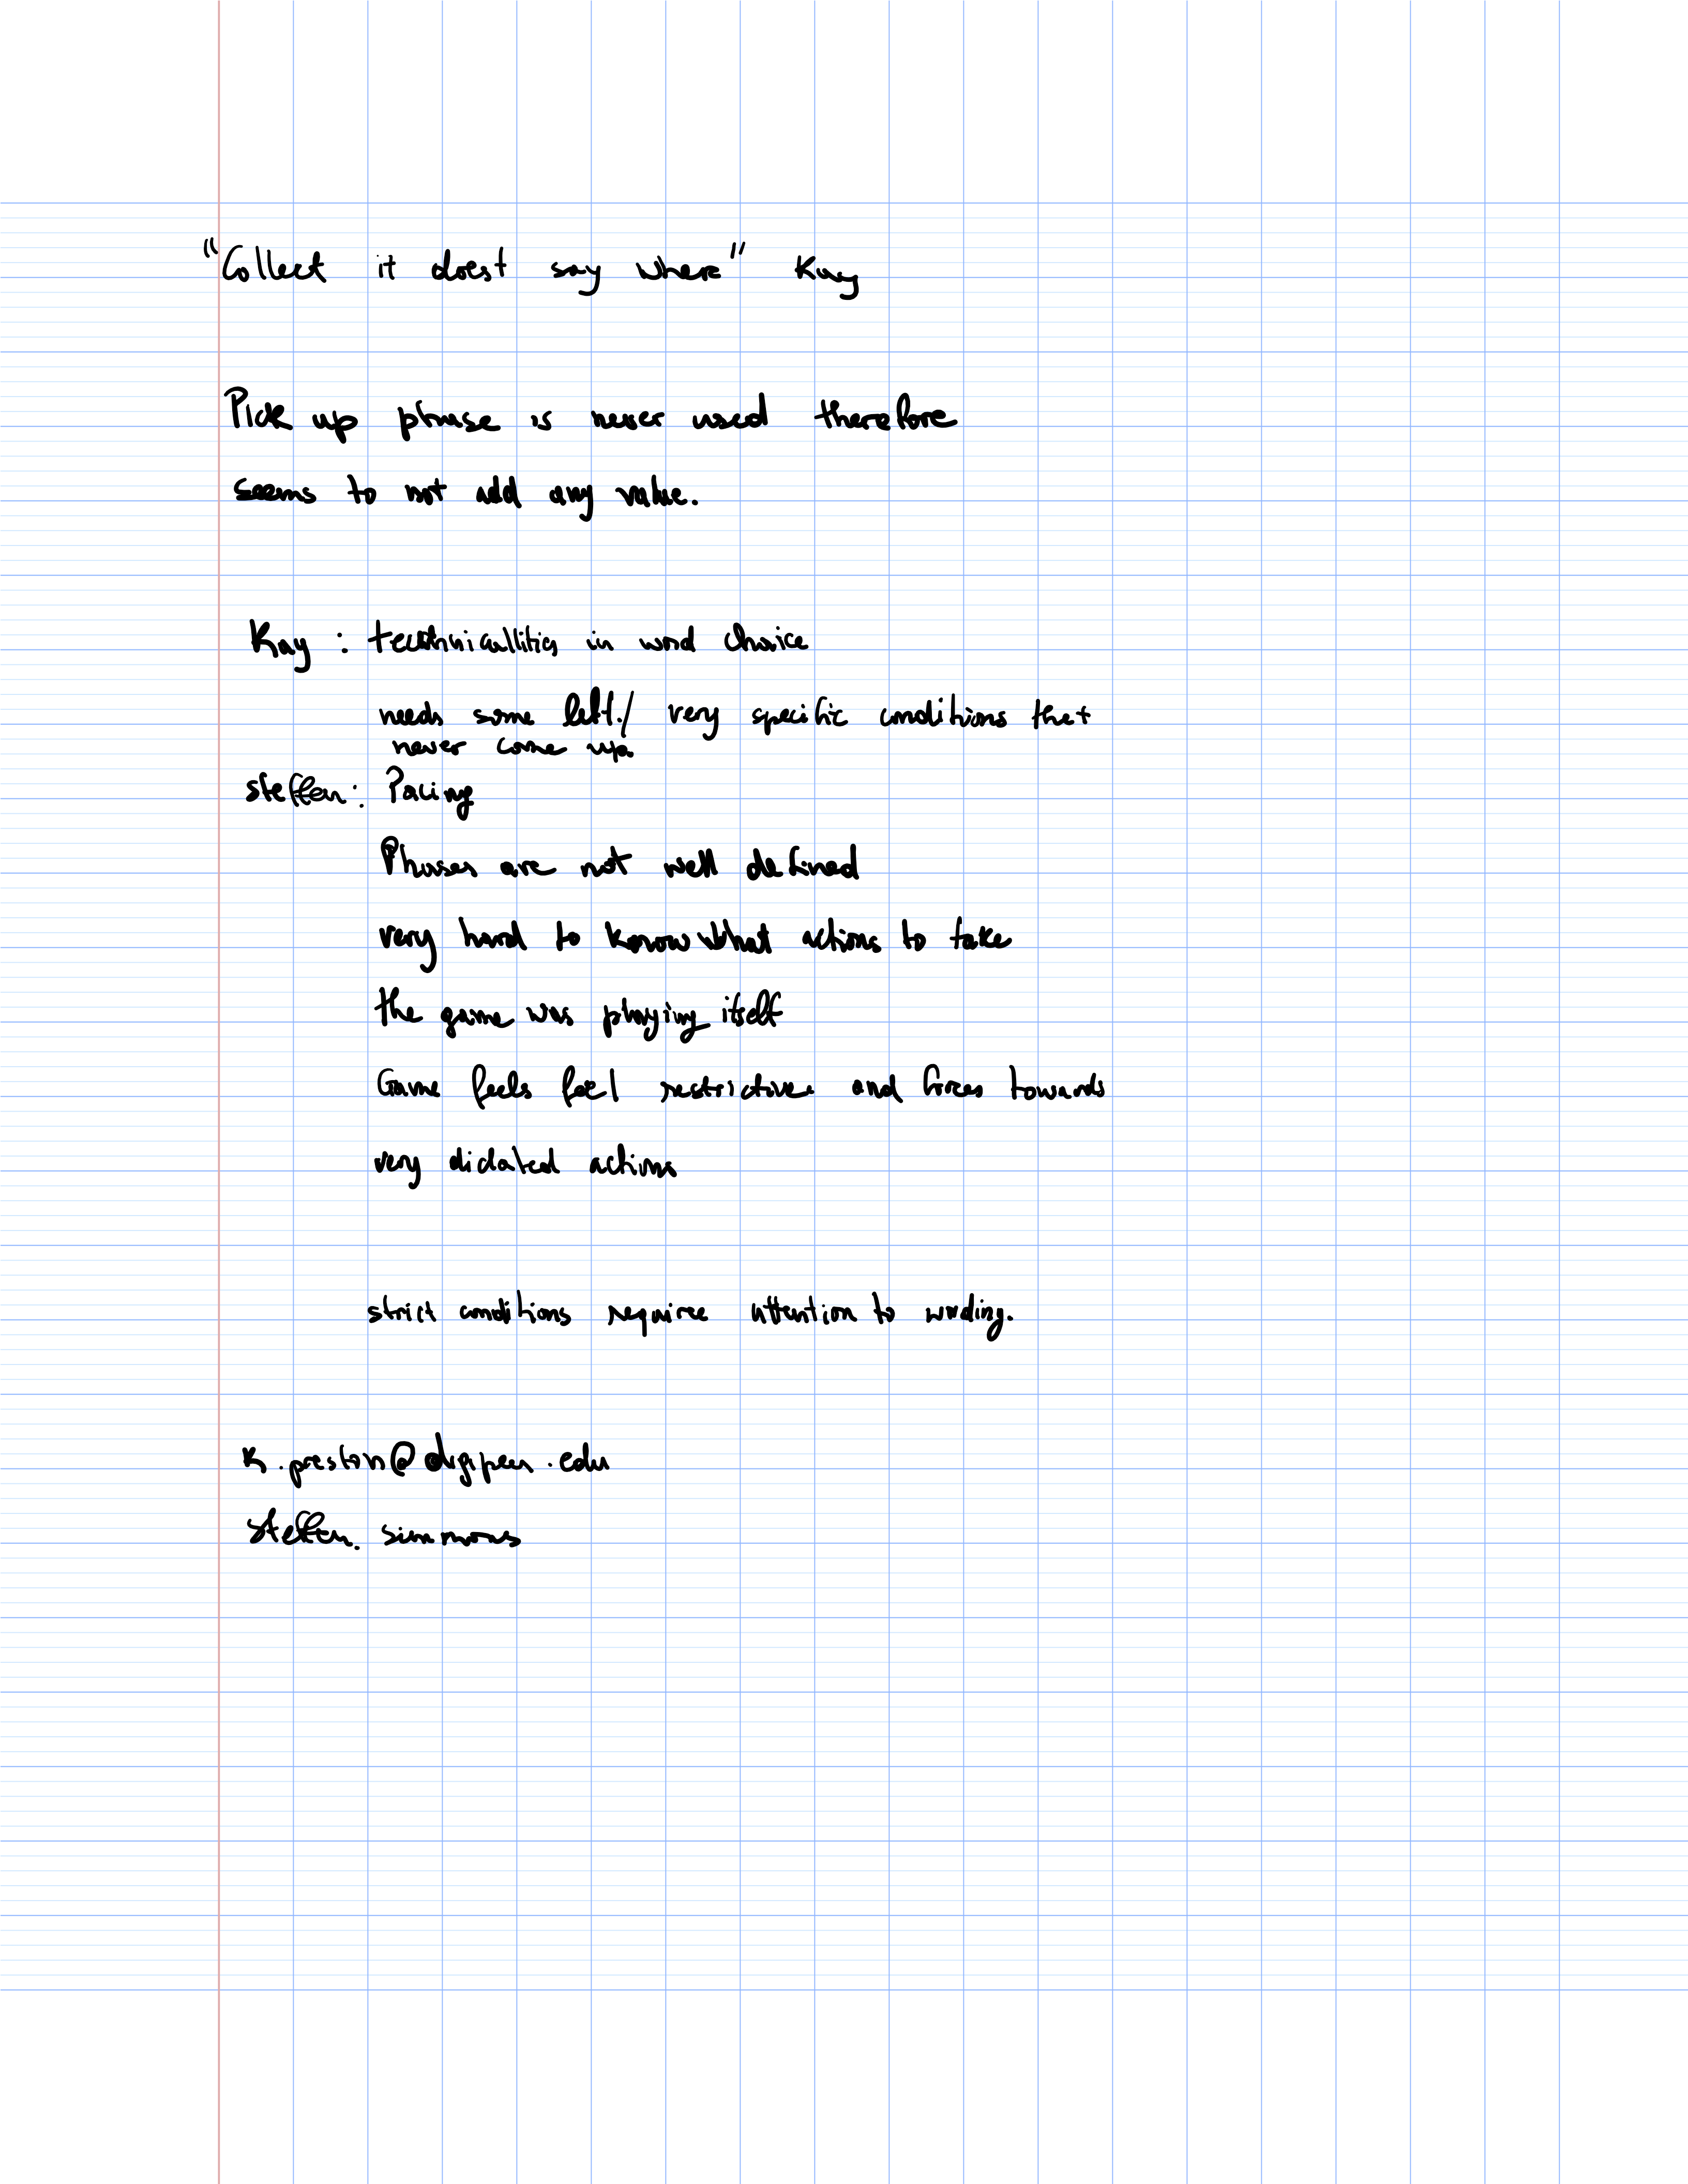 "Collect it doest say where" Kay
Pick up phrase is never used therefore
seems to not add any value.
Kay : technicallities in word choice
needs some left./ very specific conditions that
never come up.
steffen: Pacing
Phases are not well defined
very hard to know what actions to take
the game was playing itself
Game feels feel restrictive and forces towards
very dictated actions
strict conditions requires attention to wording.
k.preston@digipen.edu
steffen. simmons